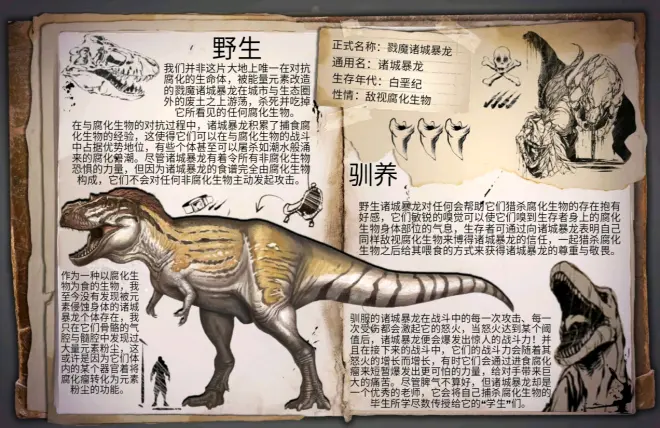 野生
我们并非这片大地上唯一在对抗
腐化的生命体，被能量元素改造
的戮魔诸城暴龙在城市与生态圈
外的废土之上游荡，杀死并吃掉
它所看见的任何腐化生物。
在与腐化生物的对抗过程中，诸城暴龙积累了捕食腐
化生物的经验，这使得它们可以在与腐化生物的战斗
中占据优势地位，有些个体甚至可以屠杀如潮水般涌
来的腐化兽潮。尽管诸城暴龙有着令所有非腐化生物
恐惧的力量，但因为诸城暴龙的食谱完全由腐化生物
构成，它们不会对任何非腐化生物主动发起攻击。
作为一种以腐化生
物为食的生物，我
至今没有发现被元
素侵蚀身体的诸城
暴龙个体存在，我
只在它们骨骼的气
腔与髓腔中发现过
大量元素粉尘，这
或许是因为它们体
内的某个器官着将
腐化瘤转化为元素
粉尘的功能。
正式名称：戮魔诸城暴龙
通用名：诸城暴龙
生存年代：白垩纪
性情：敌视腐化生物
驯养
野生诸城暴龙对任何会帮助它们猎杀腐化生物的存在抱有
好感，它们敏锐的嗅觉可以使它们嗅到生存者身上的腐化
生物身体部位的气息，生存者可通过向诸城暴龙表明自己
同样敌视腐化生物来博得诸城暴龙的信任，一起猎杀腐化
生物之后给其喂食的方式来获得诸城暴龙的尊重与敬畏。
驯服的诸城暴龙在战斗中的每一次攻击、每一
次受伤都会激起它的怒火，当怒火达到某个阈
值后，诸城暴龙便会爆发出惊人的战斗力！并
且在接下来的战斗中，它们的战斗力会随着其
怒火的增长而增长，有时它们会通过进食腐化
瘤来短暂爆发出更可怕的力量，给对手带来巨
大的痛苦。尽管脾气不算好，但诸城暴龙却是
一个优秀的老师，它会将自己捕杀腐化生物的
毕生所学尽数传授给它的“学生”们。